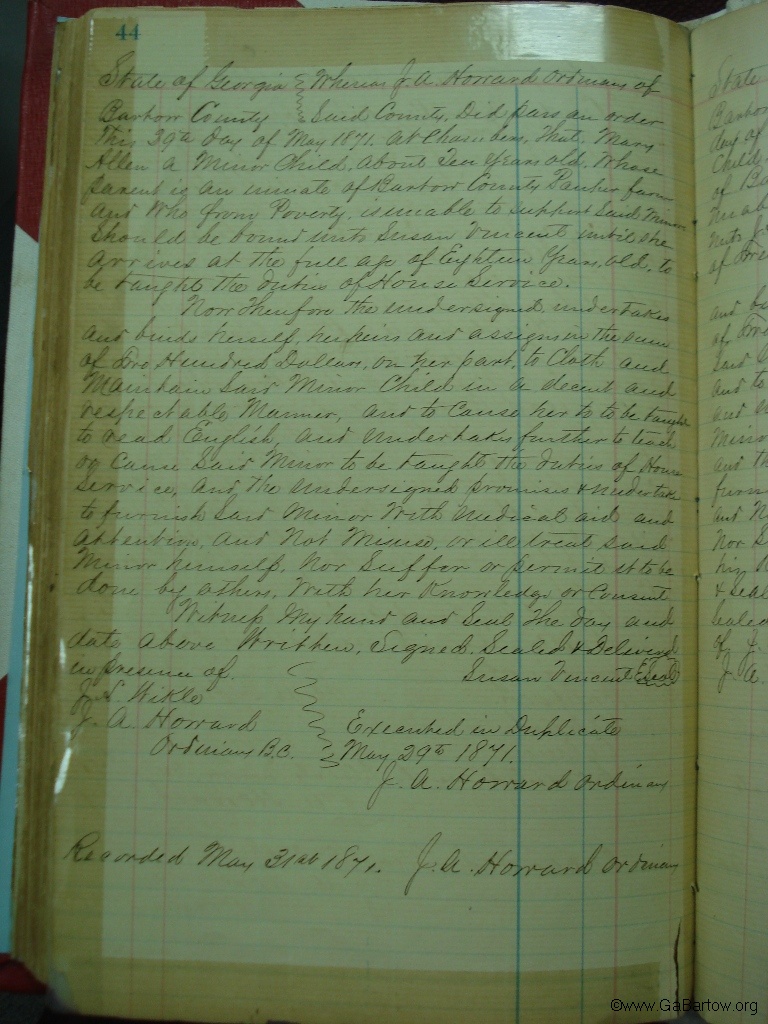 44
State of Georgia } Whereas J. A. Howard Ordinary of
Bartow County } Said County, Did pass an order
This 29th Day of May 1871. At Chambers, That Mary
Allen a Minor Child, about Ten years old, Whose
parent is an inmate of Bartow County Pauper farm
and Who from Poverty, is unable to support Said Minor
Should be bound unto Susan Vincent until she
arrives at the full age of Eighteen Years, old, to
be taught the duties of House Service.
Now Therefore the undersigned, undertakes
and binds herself, her heirs and assigns in the sum
of Two Hundred Dollars, on her part, to Cloth and
Maintain Said Minor Child in a decent and
respectable Manner, and to Cause her to to be taught
to read English, and undertakes further to teach
or Cause Said Minor to be taught the duties of House
Service, and the undersigned promises & undertake
to furnish Said Minor With Medical aid and
attention, and Not Misuse, or ill treat said
Minor himself, Nor Suffer or permit it to be
done by others, With her Knowledge or Consent
Witness My hand and Seal The day and
date above Written, Signed, Sealed & Delivered
in presence of. Susan Vincent Seal
Wikle
J. A. Howard } Executed in Duplicate
Ordinary B.C. } May 29th 1871.
J. A. Howard Ordinary
Recorded May 31st 1871. J. A. Howard Ordinary
State
Bartow
day of
Child
of Ba
and
of
Said
and to
Minor
and th
furn
and N
Nor S
& Seal
Sealed
of J.
J. A.
©www.GaBartow.org